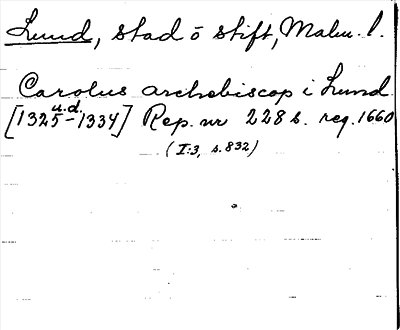 Lund, stad o stift, Malm. l.
Carolus archebiscop i Lund
u.d.
[1325-1334] Rep. nr 228 s. reg. 1660
(I:3, s.832)